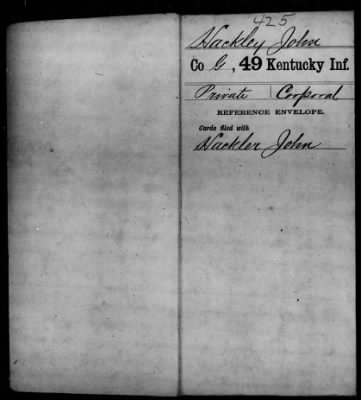 425
Hackley John
Co G, 49 Kentucky Inf.
Private | Corporal
REFERENCE ENVELOPE.
Cards filed with
Hackler John